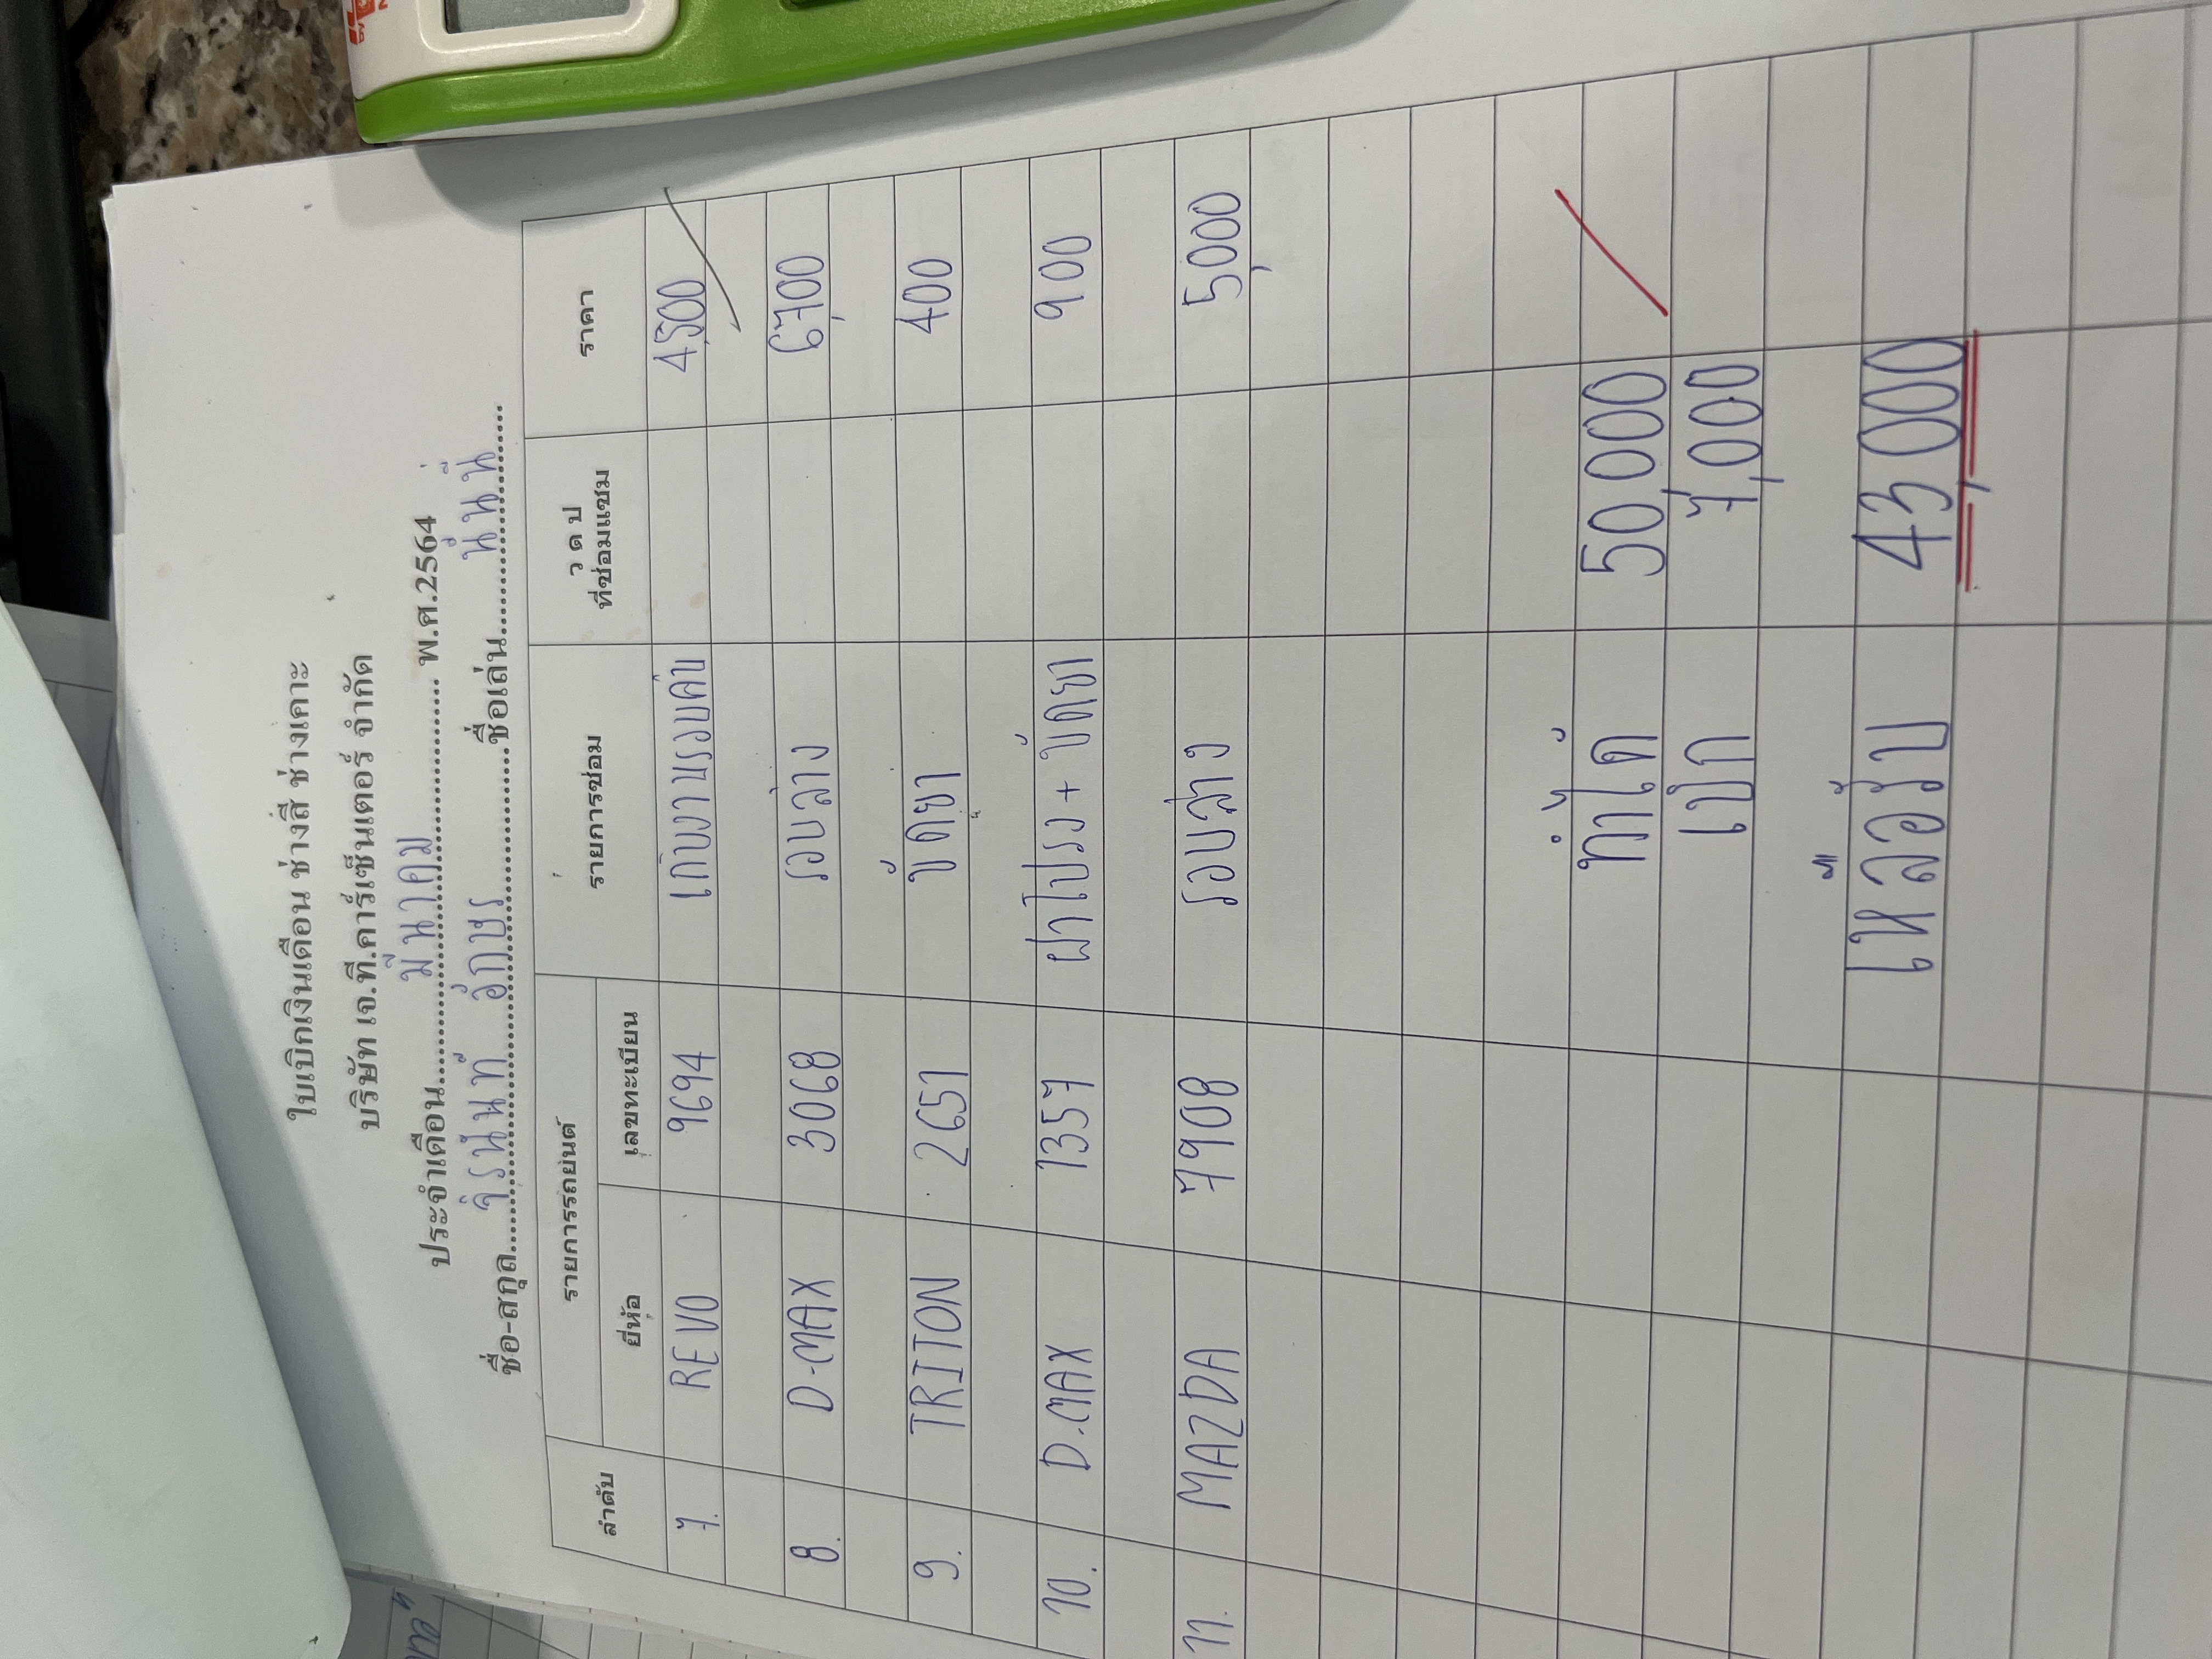 ใบเบิกเงินเดือน ช่างสี ช่างเคาะ
บริษัท เจ.ที.คาร์เซ็นเตอร์ จำกัด
ประจำเดือน......มีนาคม...... พ.ศ.2564
ชื่อ-สกุล......จิรนันท์ อักษร......ชื่อเล่น......
ลำดับ รายการรถยนต์ รายการซ่อม ว ด ป ที่ซ่อมแซม ราคา
ยี่ห้อ เลขทะเบียน
7. REVO 9694 เก็บงานรอบคัน 4,500
8. D-MAX 3068 รอบล่าง 6,700
9. TRITON 2651 ขัดยา 400
10. D-MAX 1357 ฝาโปรง + ขัดยา 900
11. MAZDA 7908 รอบล่าง 5,000
ทำได้ 50,000
เบิก 7,000
เหลือรับ 43,000